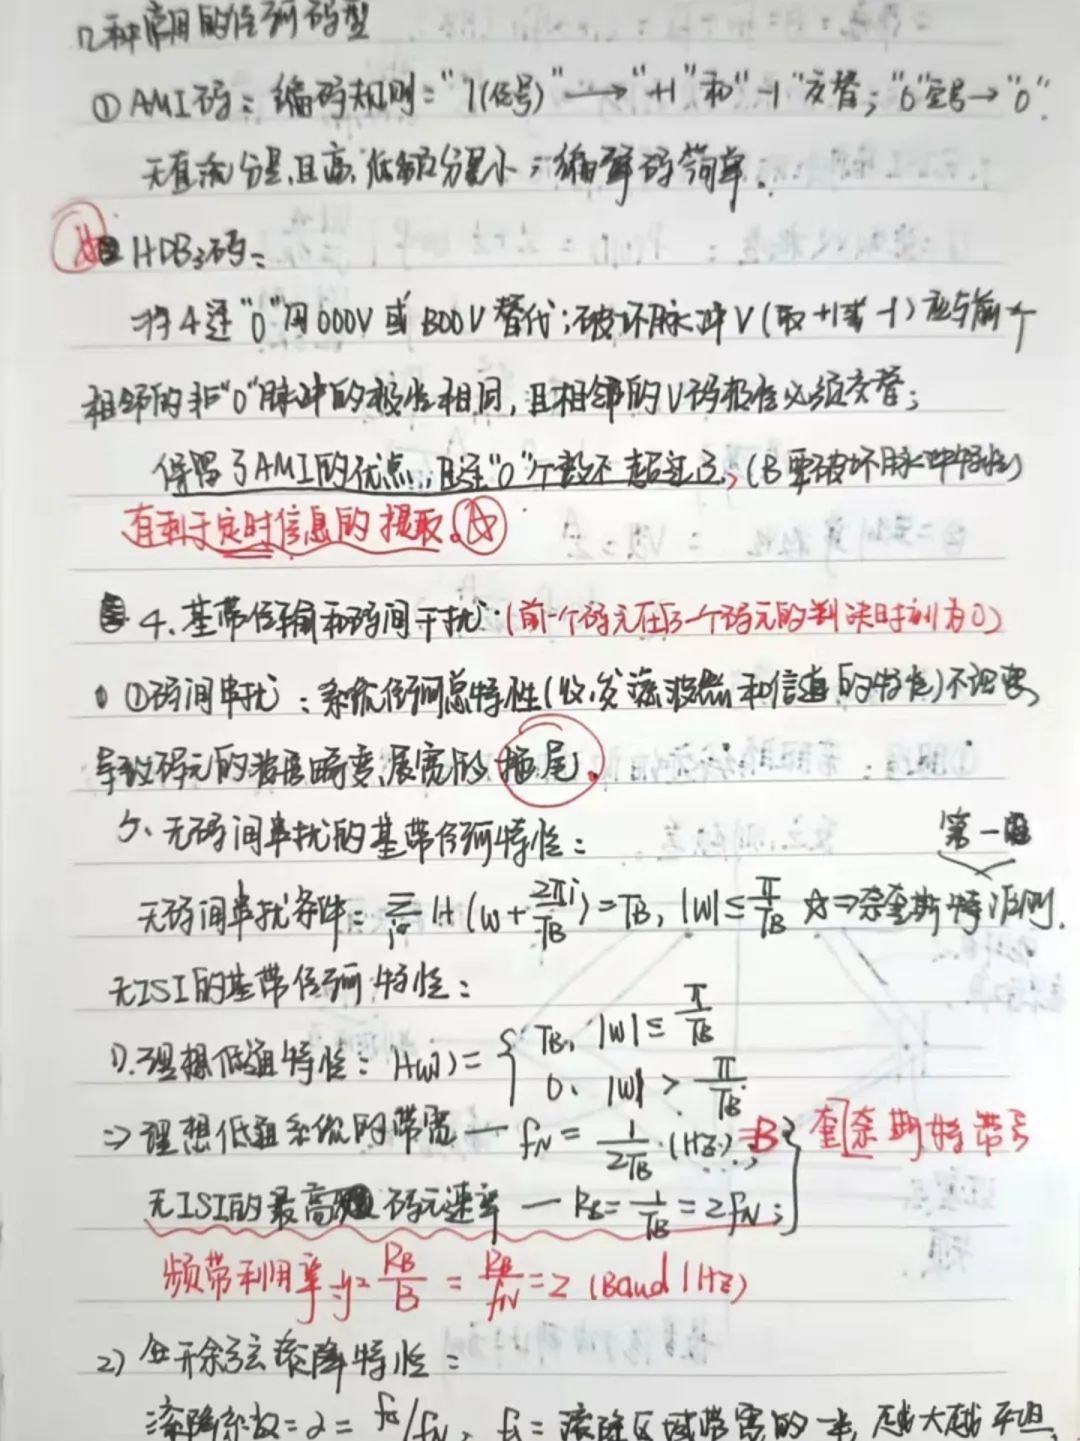 几种常用的传输码型
① AMI码：编码规则："1(传号)" → "+1"和"-1"交替；"0"空号→"0".
无直流分量,且高,低频分量小；编译码简单.
HDB3码：
将4连"0"用000V或B00V替代；破坏脉冲V(取+1或-1)应与前一个
相邻的非"0"脉冲的极性相同,且相邻的V码极性必须交替；
保留了AMI的优点,且连"0"个数不超过3,(B 破坏脉冲特性)
有利于定时信息的提取.
4.基带传输和码间干扰(前一个码元在后一个码元的判决时刻为0)
①码间串扰：系统传输总特性(收,发滤波器和信道的特性)不理想,
导致码元的波形畸变,展宽的拖尾.
5、无码间串扰的基带传输特性：
第一
无码间串扰条件：∑ H(w+2πi/TB)=TB, |w|≤π/TB ☆⇒奈奎斯特准则.
无ISI的基带传输特性：
1).理想低通特性：H(w)={TB, |w|≤π/TB
0, |w|>π/TB
⇒理想低通系统的带宽 — fN=1/2TB(Hz)=B } 奎奈斯特带宽
无ISI的最高 码元速率 — RB=1/TB=2fN；
频带利用率 η=RB/B=RB/fN=2 (Baud/Hz)
2) 升余弦滚降特性：
滚降系数=α=fΔ/fN, fΔ=滚降区域带宽的一半,越大越平坦,